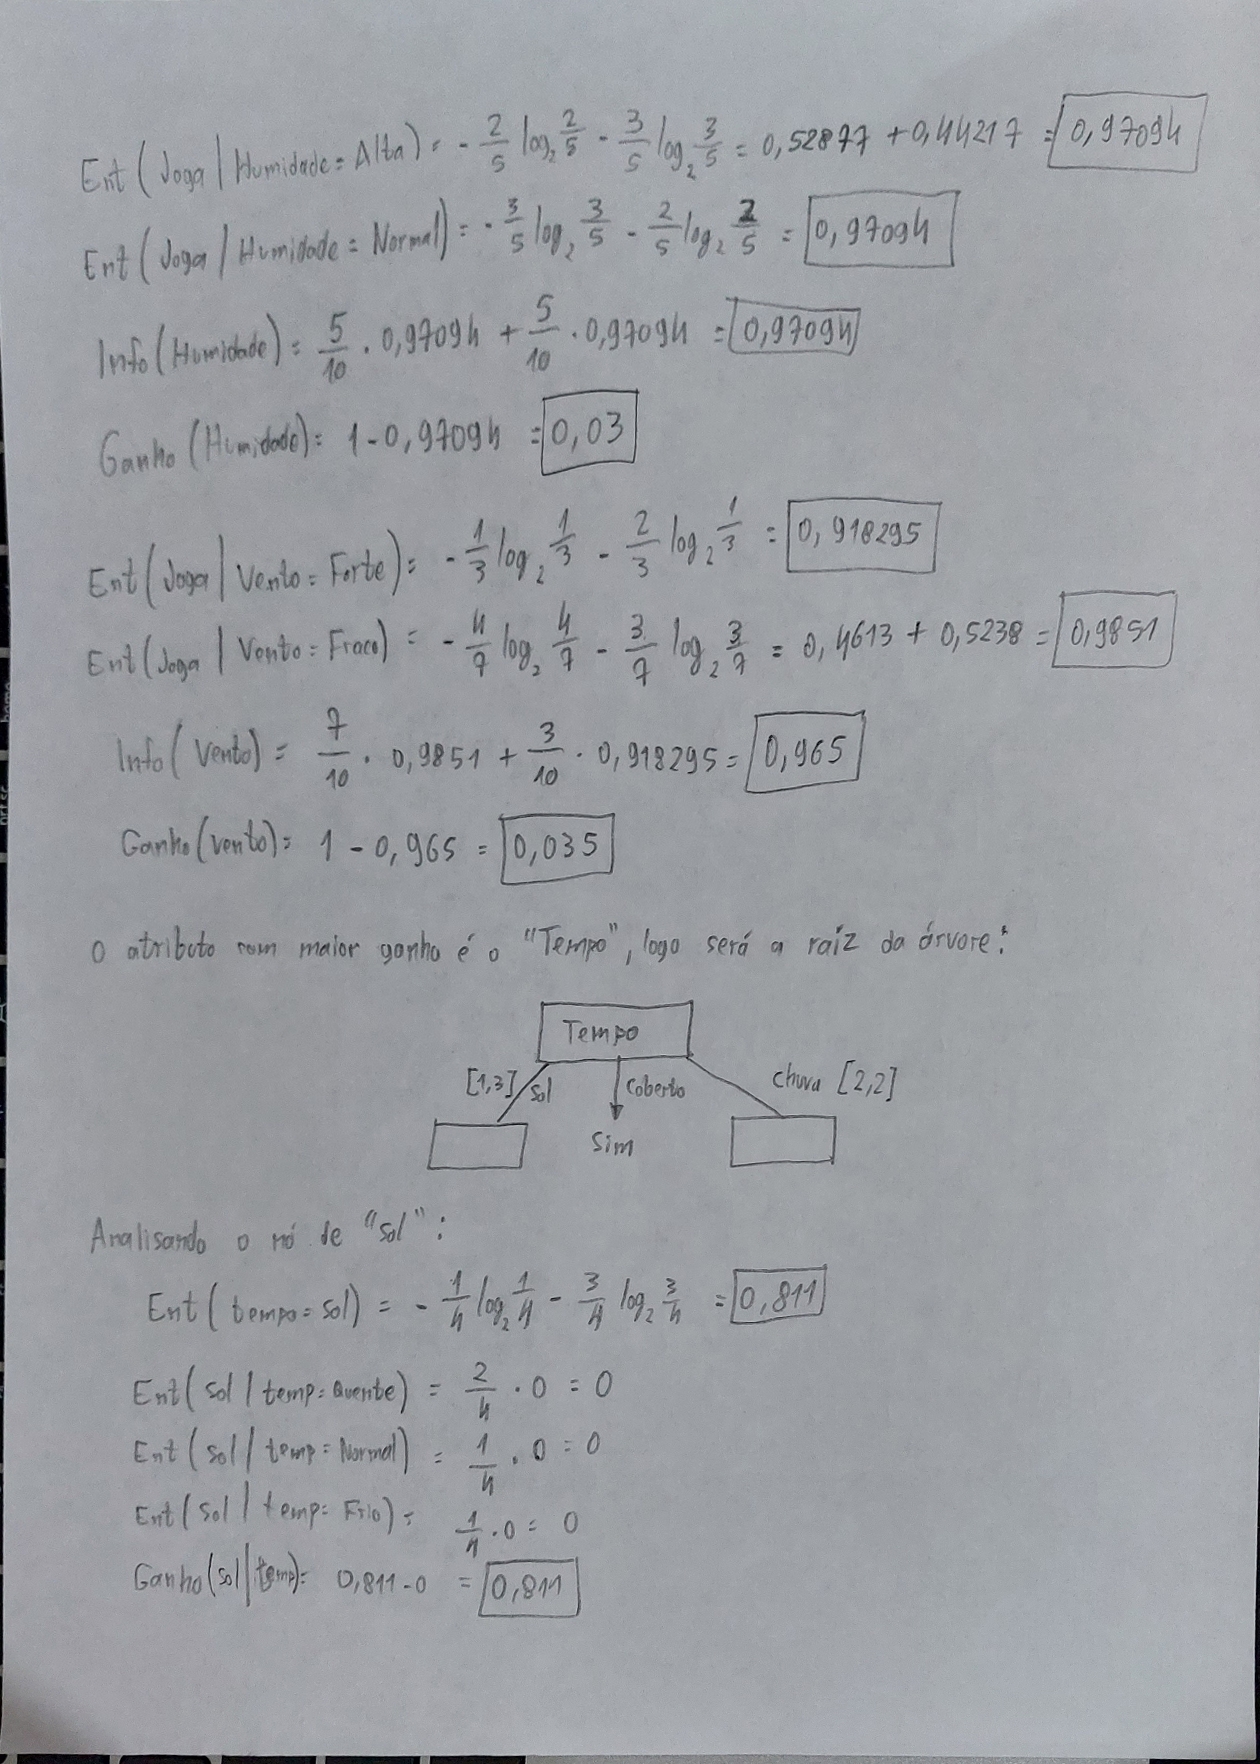 Ent(Joga | Humidade = Alta) = - 2/5 log₂ 2/5 - 3/5 log₂ 3/5 = 0,52877 + 0,44217 = 0,97094
Ent(Joga | Humidade = Normal) = - 3/5 log₂ 3/5 - 2/5 log₂ 2/5 = 0,97094
Info(Humidade) = 5/10 . 0,97094 + 5/10 . 0,97094 = 0,97094
Ganho(Humidade) = 1 - 0,97094 = 0,03
Ent(Joga | Vento = Forte) = - 1/3 log₂ 1/3 - 2/3 log₂ 1/3 = 0,918295
Ent(Joga | Vento = Fraco) = - 4/7 log₂ 4/7 - 3/7 log₂ 3/7 = 0,4613 + 0,5238 = 0,9851
Info(Vento) = 7/10 . 0,9851 + 3/10 . 0,918295 = 0,965
Ganho(vento) = 1 - 0,965 = 0,035
O atributo com maior ganho é o "Tempo", logo será a raíz da árvore:
Tempo
[1,3] Sol Coberto chuva [2,2]
Sim
Analisando o nó de "sol":
Ent(tempo = sol) = - 1/4 log₂ 1/4 - 3/4 log₂ 3/4 = 0,811
Ent(sol | temp = Quente) = 2/4 . 0 = 0
Ent(sol | temp = Normal) = 1/4 . 0 = 0
Ent(sol | temp = Frio) = 1/4 . 0 = 0
Ganho(sol | temp) = 0,811 - 0 = 0,811